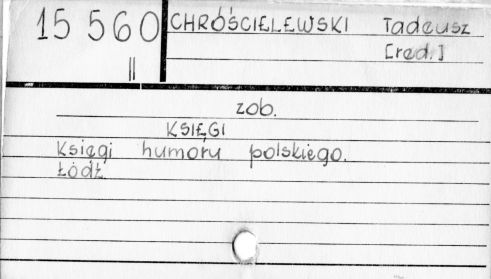 15 560 CHRÓŚCIELEWSKI Tadeusz
II [red.]
zob.
KSIĘGI
Księgi humoru polskiego.
Łódź